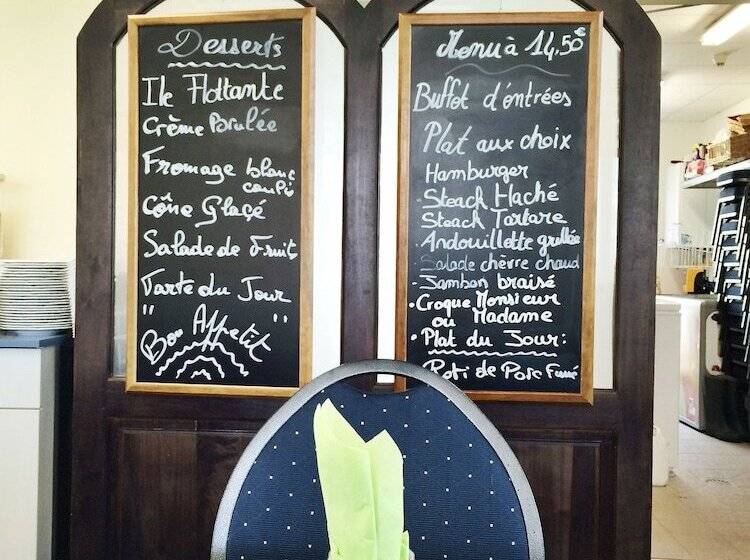 Desserts
Ile Flottante
Crème Brulée
Fromage blanc
coulis
Cône Glaçé
Salade de Fruit
Tarte du Jour
" Bon Appetit "
Menu à 14,50€
Buffet d'entrées
Plat aux choix
Hamburger
• Steack Haché
Steack Tartare
• Andouillette grillée
• Salade chèvre chaud
• Jambon braisé
• Croque Monsieur
ou Madame
• Plat du Jour:
Roti de Porc Fumé